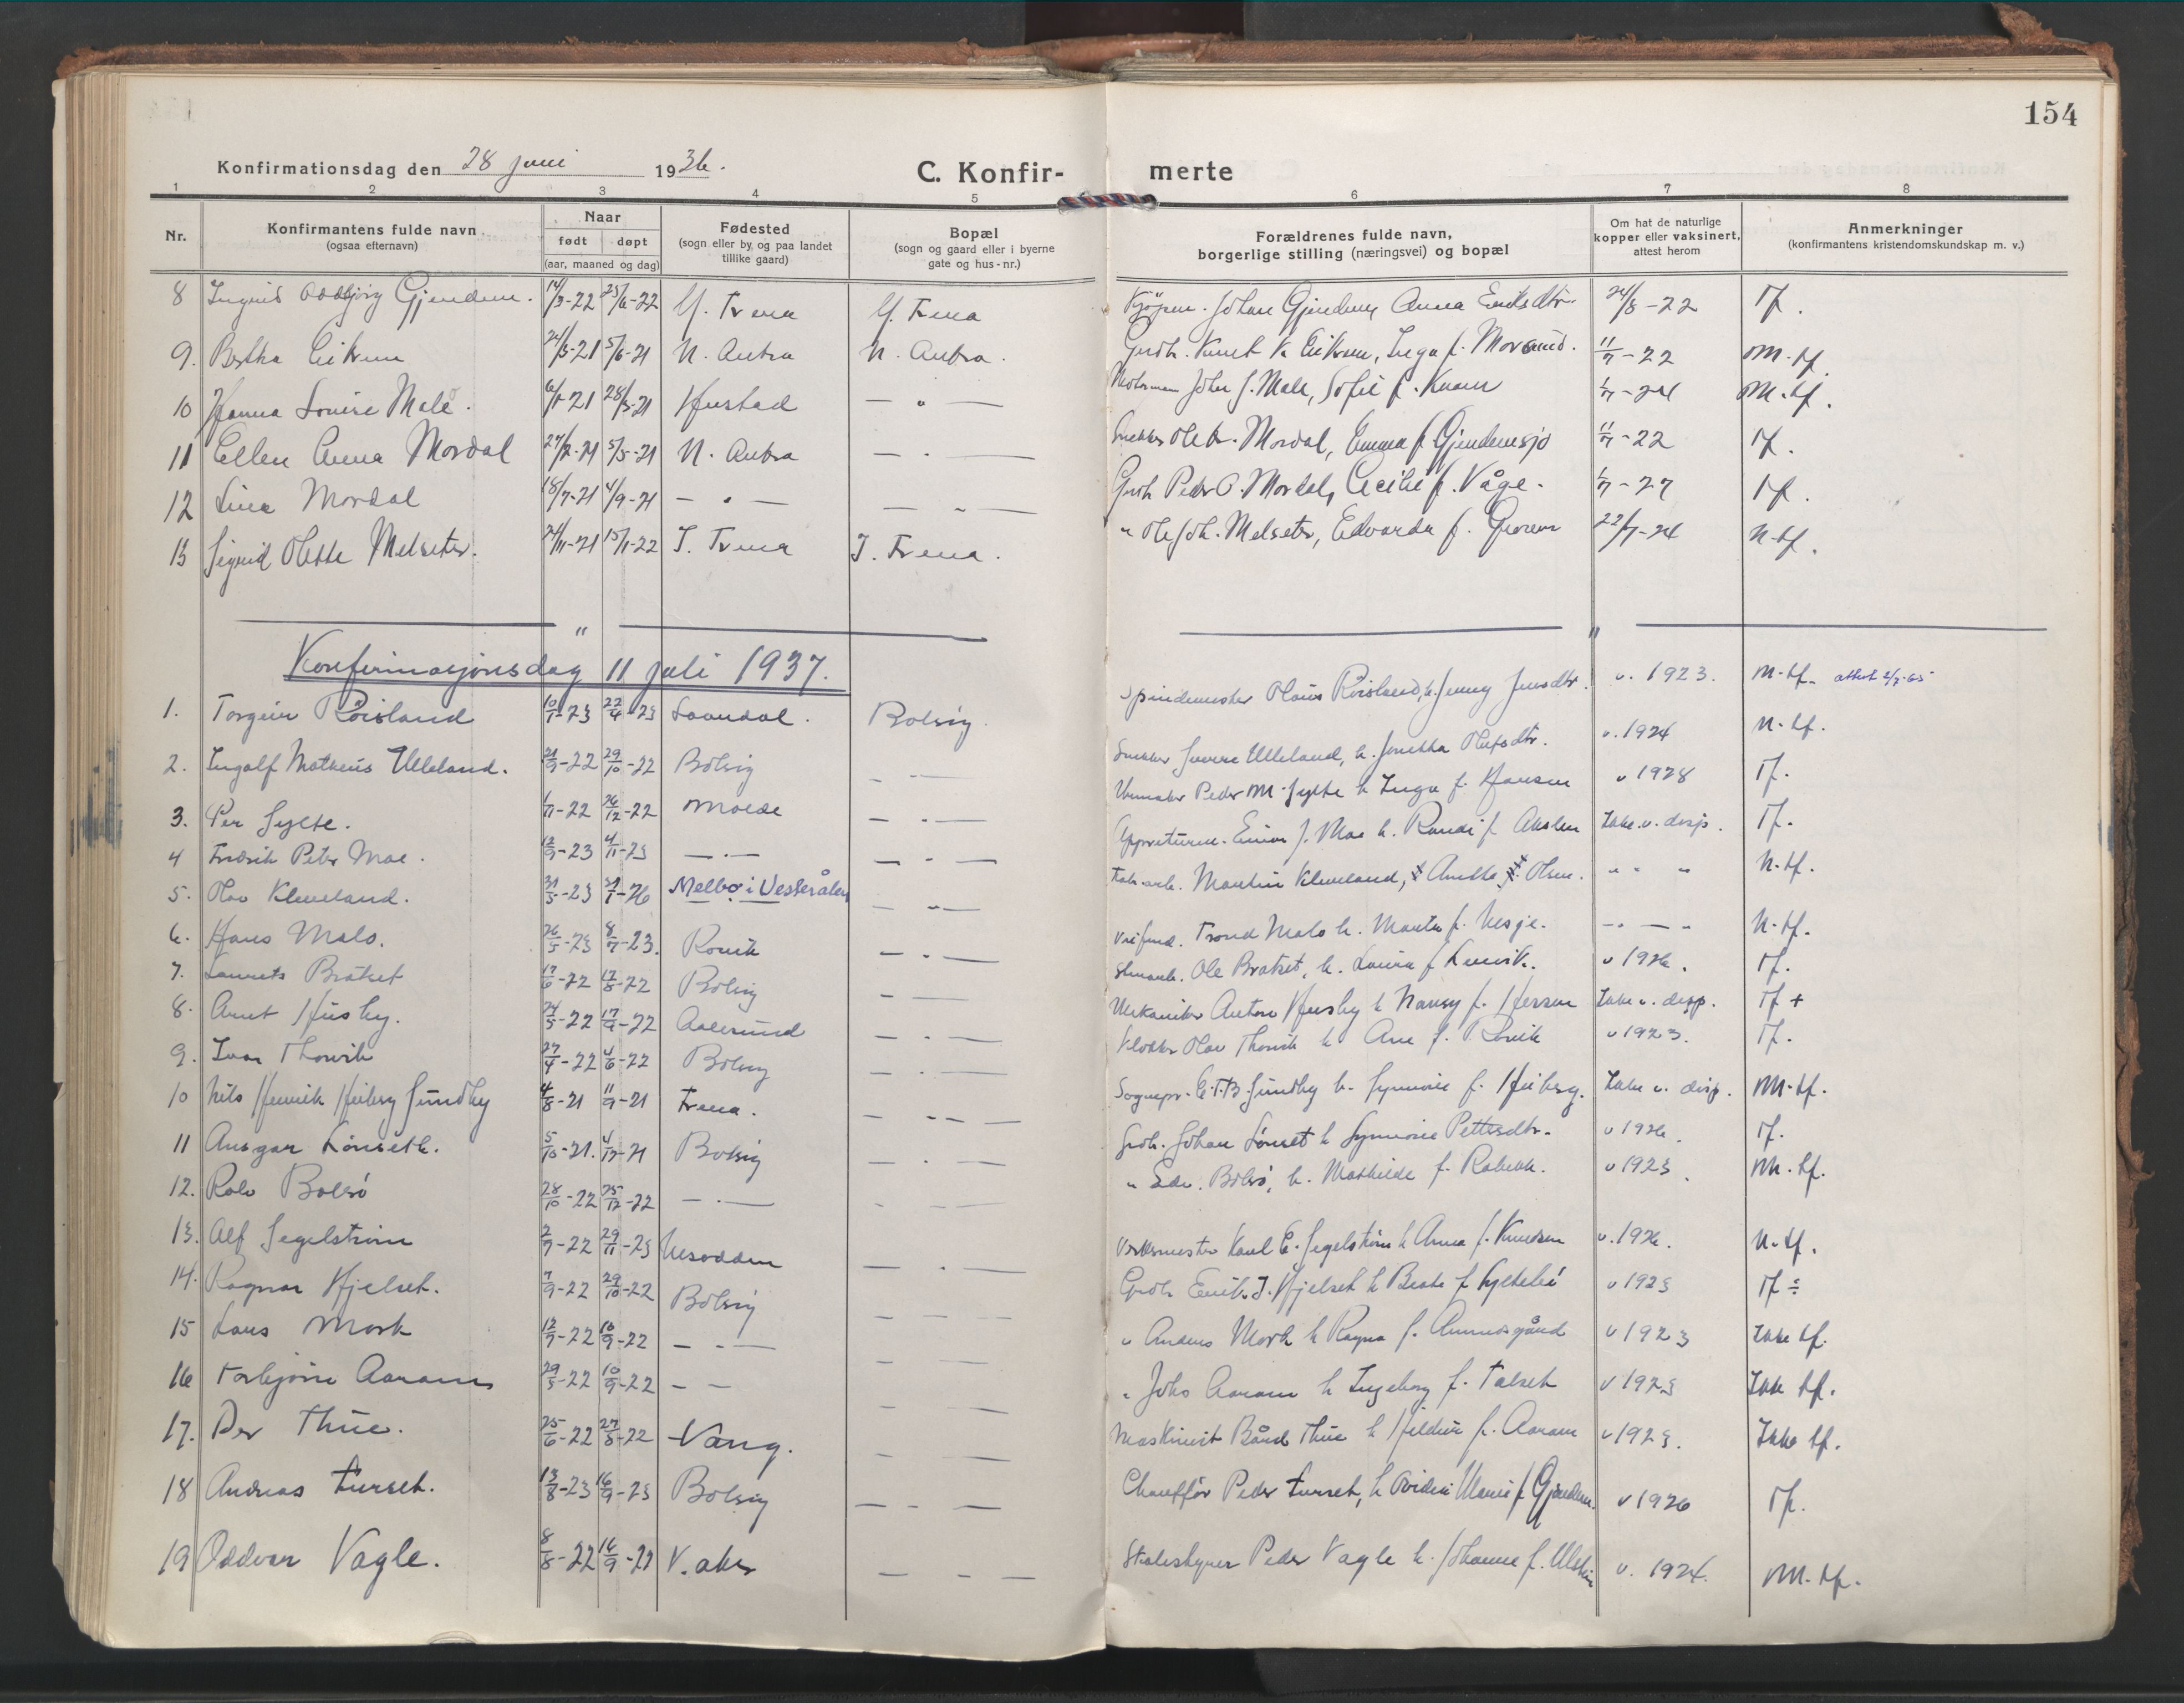 154
Konfirmationsdag den 28 juni 1936.
C. Konfirmerte
1 2 3 4 5 6 7 8
Nr.
Konfirmantens fulde navn
(ogsaa efternavn)
Naar
født døpt
(aar, maaned og dag)
Fødested
(sogn eller by, og paa landet
tillike gaard)
Bopæl
(sogn og gaard eller i byerne
gate og hus-nr.)
Forældrenes fulde navn,
borgerlige stilling (næringsvei) og bopæl
Om hat de naturlige
kopper eller vaksinert,
attest herom
Anmerkninger
(konfirmantens kristendomskundskap m. v.)
8 Ingrid Oddbjörg Gjendem. 14/3-22 25/6-22 Y. Frena Y. Frena Johan Gjendem, Anna 24/8-22 Tf.
9. Bertha Eikrem 5/6-21 N. Aukra N. Aukra. Grdb. Knut K. Eikrem, Inga f. 11/7-22 M.tf.
10 Hanna Louise Male. 6/1-21 28/3-21 Hustad — " — John J. Male, Sofie f. Knam M.tf.
11 Ellen Anna Mordal 27/2-21 5/5-21 N. Aukra — . — Mordal, Emma f. Gjendemsjø 11/7-22 Tf.
12 Lina Mordal 18/7-21 4/9-21 — . — — " — Grdb. Peder O. Mordal, Cecilie f. Våge. Tf.
13 Sigrid Olette Melseter. 24/11-21 15/1-22 I. Frena I. Frena. " Ole Joh. Melseter, Edvarda f. 22/7-24 N.tf.
Konfirmasjonsdag 11 juli 1937.
1. Torgeir Röisland 10/1-23 22/4-23 Laudal. Bolsöy. Spindemester Olaus Röisland, h. Jenny v. 1923. M.tf. attest 2/7-65
2. Ingolf Matheus Ulleland. 21/9-22 29/10-22 Bolsöy — . — Snekker Ulleland, h. Olufsdtr. v. 1924 N.tf.
3. Per Sylte. 1/11-22 26/12-22 Molde — . — Peder M. Sylte h Inga f. Hansen v 1928 Tf.
4 Fredrik Peter Moe. 12/9-23 4/11-23 — . — — . — Einar J. Moe h. Randi f. Akslen Ikke. v. disp. Tf.
5. Olav Kleveland. 31/5-23 31/1-26 Melbo i Vesterålen — " — Martin Kleveland, Anetta f. Olsen. " " " N.tf.
6. Hans Malo. 26/5-23 8/7-23. Rovik — . — Trond Malo h. Marta f. Nesje. — " — " N.tf.
7. Laurits Bratset 17/6-22 17/8-22 Bolsöy — . — Ole Bratset, h. Laura f. v 1926. Tf.
8. Arnt Husby. 24/5-22 17/9-22 Aalesund — . — Mekaniker Anton Husby h Nancy f. Ikke v. disp. Tf +
9. Ivar Thorvik 27/4-22 4/6-22 Bolsöy — . — Klokker Olav Thorvik h Ane f. Rövik v 1923. Tf.
10 Nils Henrik Heiberg Sundby 4/8-21 11/9-21 Frena. — — — Sognepr. E.T.B. Sundby h. Synnöve f. Heiberg. Ikke v. disp. M.tf.
11 Ansgar Lönseth. 5/10-21. 4/12-21 Bolsöy — . — Grdb. Johan Lönset h Synnöve Pettersdtr. v 1926. Tf.
12. Rolv Bolsö 28/10-22 25/12-22 — . — — . — " Edv. Bolsö, h. Mathilde f. Röbekk. v 1923. M.tf.
13. Alf Segelström 2/7-22 29/11-23 Nesodden — . — Verksmester Karl E. Segelström h Anna f. Knudsen v. 1926. N.tf.
14. Ragnar Hjelset. 7/9-22 29/10-22 Bolsöy — — — Grdb. Erik J. Hjelset h Beate f. v 1923 Tf ÷
15 Lars Mork 12/7-22 10/9-22 — . — — — " Anders Mork h Ragna f. v 1923 Ikke tf.
16 Torbjörn Aaram 29/5-22 10/9-22 — — — — " Johs Aaram h Ingeborg f. Talset v 1923 Ikke tf.
17. Per Thue. 25/6-22 27/8-22 Vang. — — Maskinist Bård Thue h Hildur f. Aaram v 1923. Ikke tf.
18 Andreas Furset. 13/8-23 16/9-23 Bolsöy — — — Chaufför Peder Furset, h f. Gjendem. v 1926 Tf.
19 Oddvar Vagle. 8/8-22 V. aker — — — Peder Vagle h. Johanne f. v. 1924. M.tf.